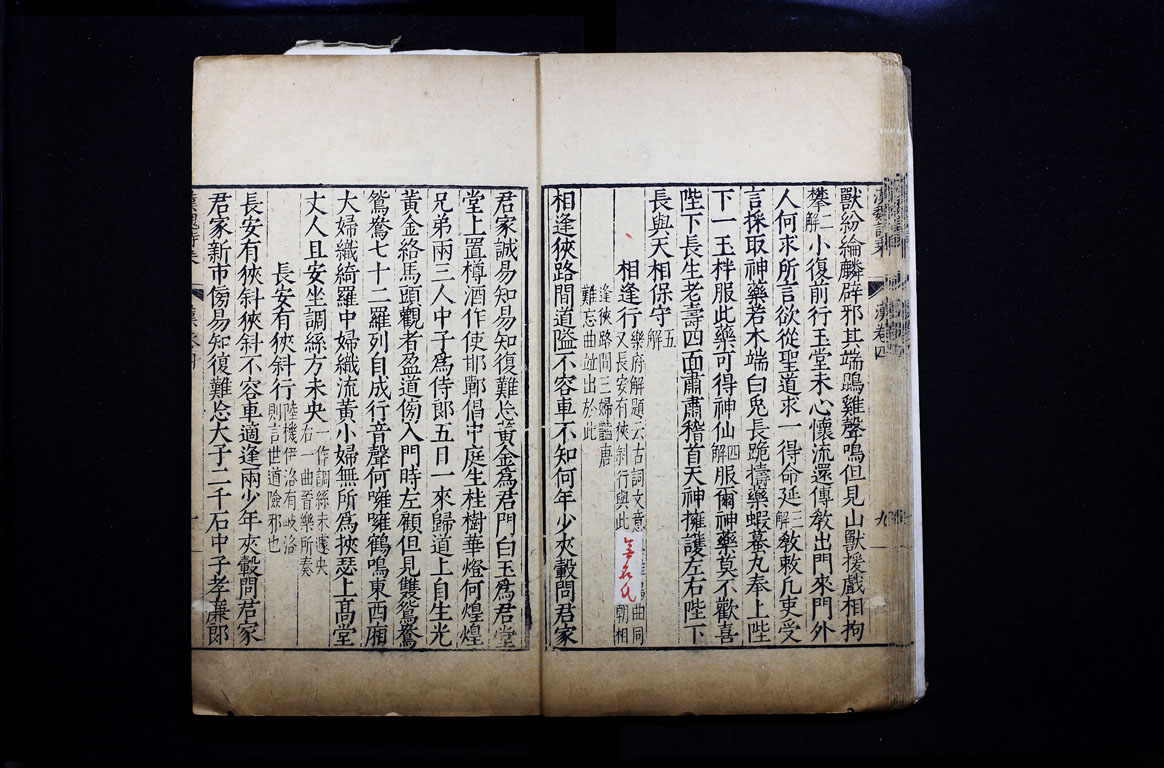 漢魏詩乘 漢卷四 九
獸紛綸麟辟邪其端鵾雞聲鳴但見山獸援戲相拘
攀二解小復前行玉堂未心懷流還傳教出門來門外
人何求所言欲從聖道求一得命延三解教敕凡吏受
言採取神藥若木端白兎長跪擣藥蝦蟇丸奉上陛
下一玉柈服此藥可得神仙四解服爾神藥莫不歡喜
陛下長生老壽四面肅肅稽首天神擁護左右陛下
長與天相保守五解
相逢行
樂府解題云古詞文意曲同
又長安有狹斜行與此朝相
逢狹路間三婦豔唐
難忘曲並出於此
無名氏
相逢狹路間道隘不容車不知何年少夾轂問君家
君家誠易知易知復難忘黃金爲君門白玉爲君堂
堂上置樽酒作使邯鄲倡中庭生桂樹華燈何煌煌
兄弟兩三人中子爲侍郎五日一來歸道上自生光
黃金絡馬頭觀者盈道傍入門時左顧但見雙鴛鴦
鴛鴦七十二羅列自成行音聲何噰噰鶴鳴東西廂
大婦織綺羅中婦織流黃小婦無所爲挾瑟上高堂
丈人且安坐調絲方未央
一作調絲未遽央
右一曲晉樂所奏
長安有狹斜行
陸機伊洛有岐洛
則言世道險邪也
長安有狹斜狹斜不容車適逢兩少年夾轂問君家
君家新市傍易知復難忘大子二千石中子孝廉郎